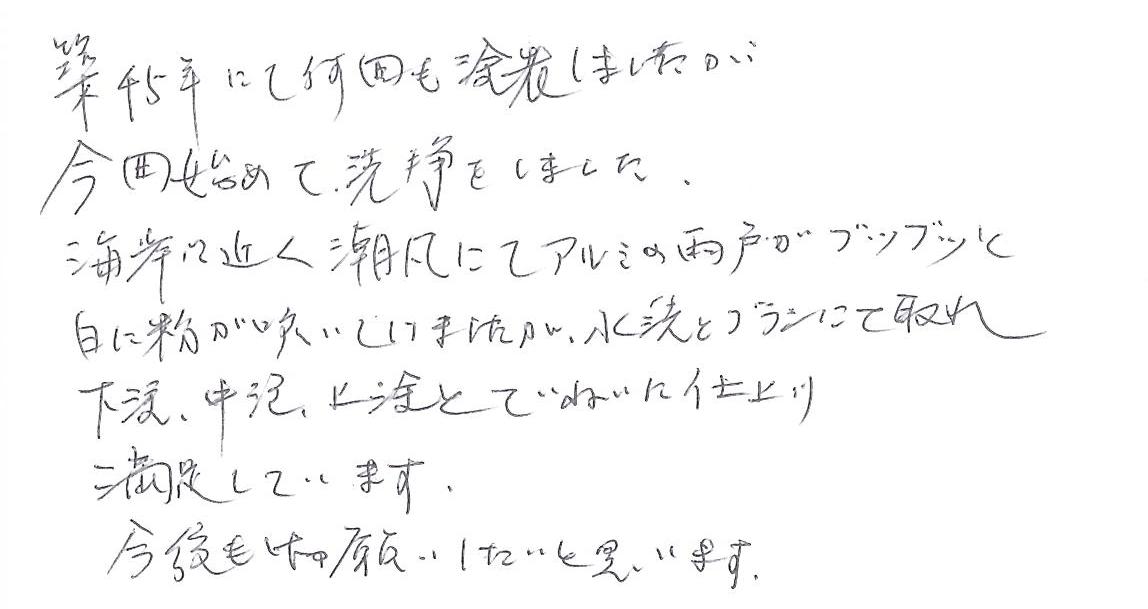 築45年にて何回も塗装しましたが
今回始めて洗浄をしました.
海岸に近く潮風にてアルミの雨戸がブツブツと
白に粉が吹いていましたが、水洗とブラシにて取れ
下塗、中塗、上塗とていねいに仕上り
満足しています.
今後もお願いしたいと思います.